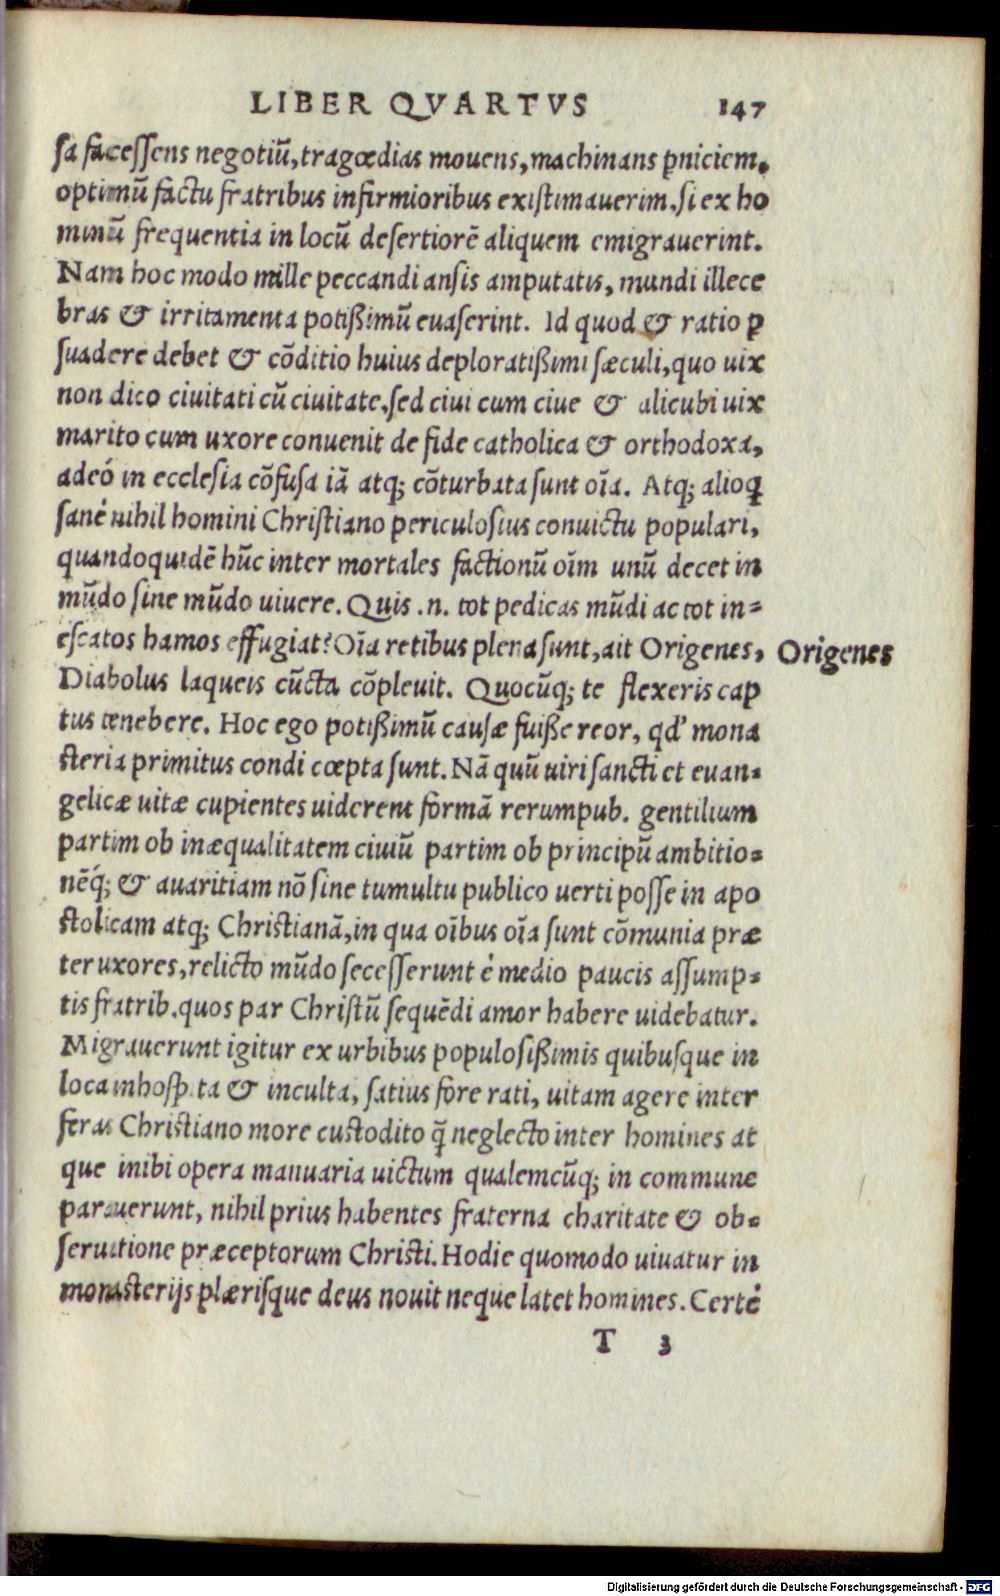 LIBER QVARTVS 147
ſa faceſſens negotiũ, tragœdias mouens, machinans ꝑniciem.
optimũ factu fratribus infirmioribus exiſtimauerim. ſi ex ho
minũ frequentia in locũ deſertiorẽ aliquem emigrauerint.
Nam hoc modo mille peccandi anſis amputatis, mundi illece
bras & irritamenta potißimũ euaſerint. Id quod & ratio ꝑ
ſuadere debet & cõditio huius deploratißimi ſæculi, quo uix
non dico ciuitati cũ ciuitate, ſed ciui cum ciue & alicubi uix
marito cum uxore conuenit de fide catholica & orthodoxa,
adeó in eccleſia cõfuſa iã atq; cõturbata ſunt oĩa. Atq; alioꝗ
ſané nihil homini Chriſtiano periculoſius conuictu populari,
quandoquidẽ hũc inter mortales factionũ oĩm unũ decet in
mũdo ſine mũdo uiuere. Quis .n. tot pedicas mũdi ac tot in-
eſcatos hamos effugiat? Oĩa retibus plena ſunt, ait Origenes, Origenes
Diabolus laqueis cũcta cõpleuit. Quocũq; te flexeris cap
tus tenebere. Hoc ego potißimũ cauſæ fuiße reor, qd' mona
ſteria primitus condi cœpta ſunt. Nã quũ uiri ſancti et euan-
gelicæ uitæ cupientes uiderent formã rerumpub. gentilium
partim ob inæqualitatem ciuiũ partim ob principũ ambitio-
nẽq́; & auaritiam nõ ſine tumultu publico uerti poſſe in apo
ſtolicam atq; Chriſtianã, in qua oĩbus oĩa ſunt cõmunia præ
ter uxores, relicto mũdo ſeceſſerunt é medio paucis aſſump-
tis fratrib. quos par Chriſtũ ſequẽdi amor habere uidebatur.
Migrauerunt igitur ex urbibus populoſißimis quibuſque in
loca inhoſp ta & inculta, ſatius fore rati, uitam agere inter
feras Chriſtiano more cuſtodito q̃ neglecto inter homines at
que inibi opera manuaria uictum qualemcũq; in commune
parauerunt, nihil prius habentes fraterna charitate & ob-
ſeruatione præceptorum Chriſti. Hodie quomodo uiuatur in
monaſterijs plæriſque deus nouit neque latet homines. Certé
T 3
Digitalisierung gefördert durch die Deutsche Forschungsgemeinschaft - DFG